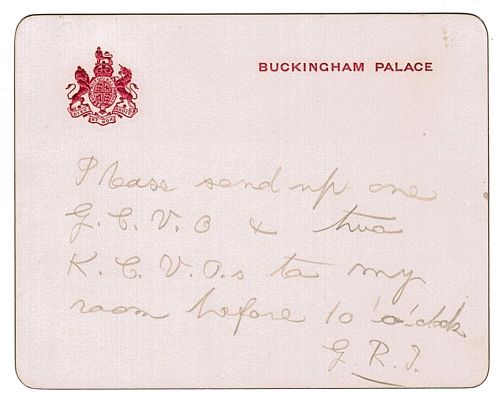 BUCKINGHAM PALACE
Please send up one
G. C. V. O & two
K. C. V. O.s to my
room before 10 'o'clock
G. R. I.